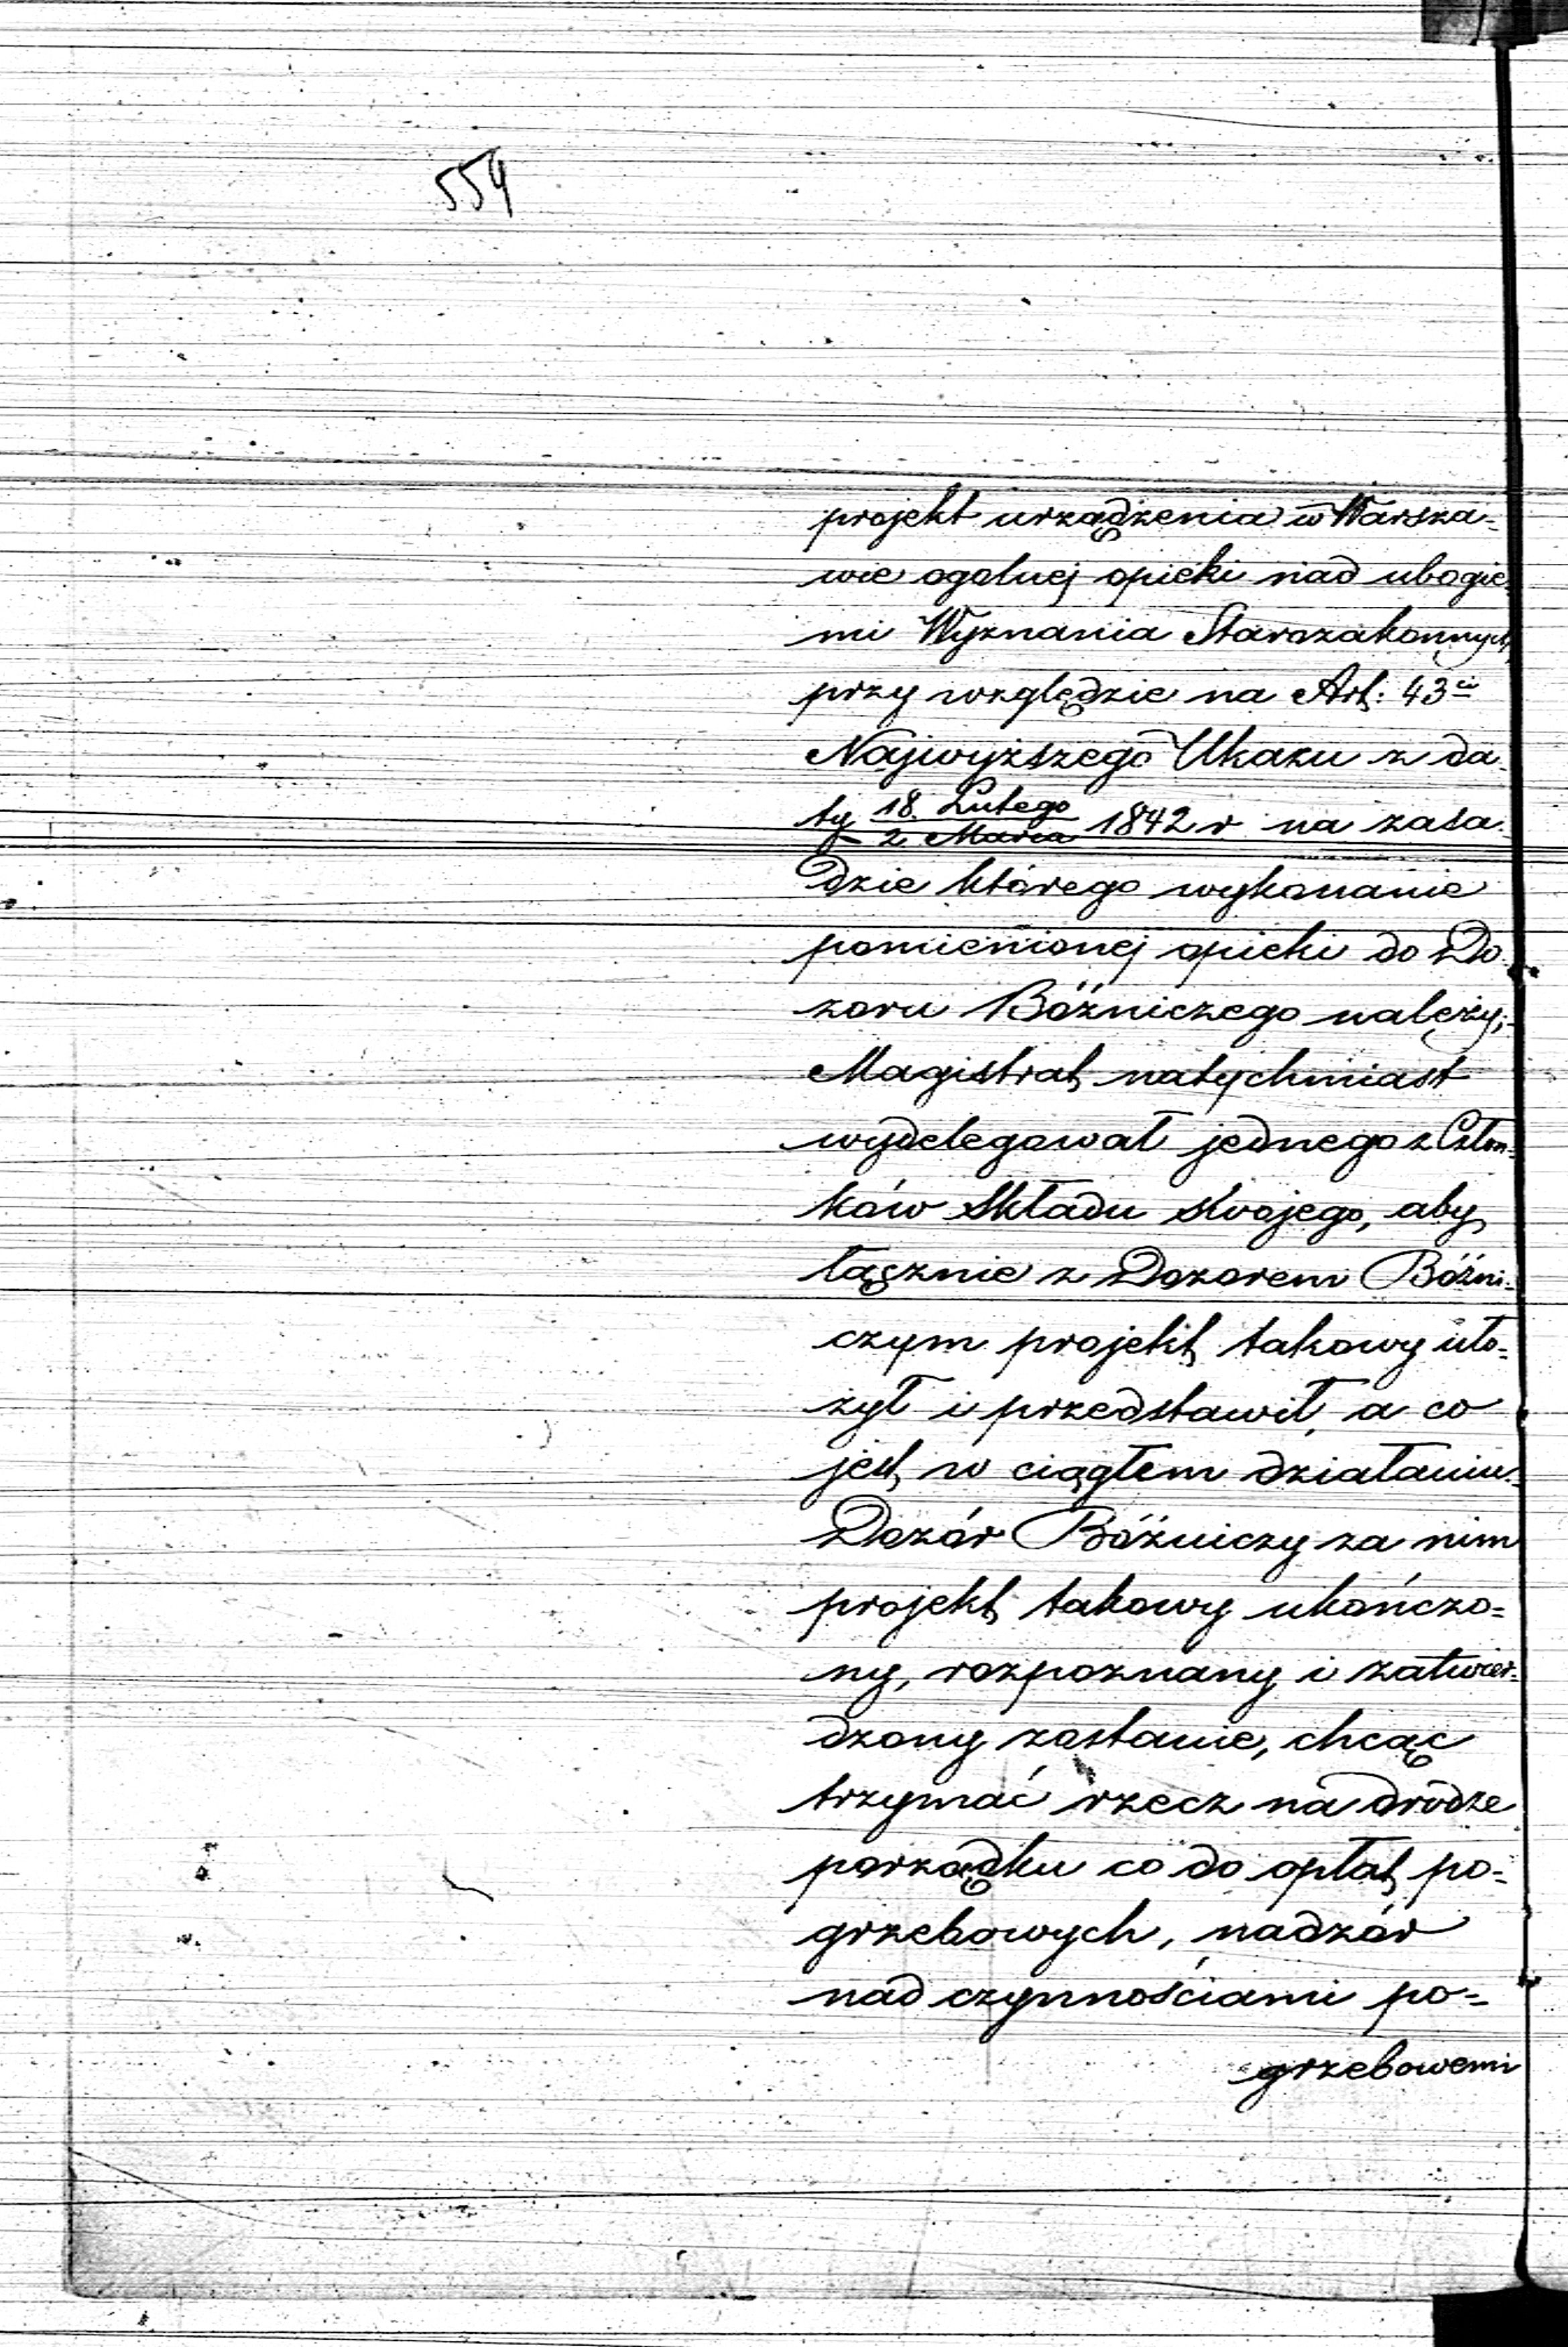 554
projekt urządzenia w Warsza-
wie ogolnej opieki nad ubogie-
mi Wyznania Starozakonnych,
przy względzie na Art: 43ci
Najwyższego Ukazu z da-
ty 18 Lutego / 2 Marca 1842 r na zasa-
dzie którego wykonanie
pomienionej opieki do Do-
zoru Bóżniczego należy;-
Magistrat natychmiast
wydelegował jednego z Człon-
ków Składu swojego, aby
łącznie z Dozorem Bóźni-
czym projekt takowy uło-
żył i przedstawił, a co
jest w ciągłem działaniu.
Dozór Bóżniczy za nim
projekt takowy ukończo-
ny, rozpoznany i zatwier-
dzony zostanie, chcąc
trzymać rzecz na drodze
porządku co do opłat po-
grzebowych, nadzór
nad czynnościami po-
grzebowemi